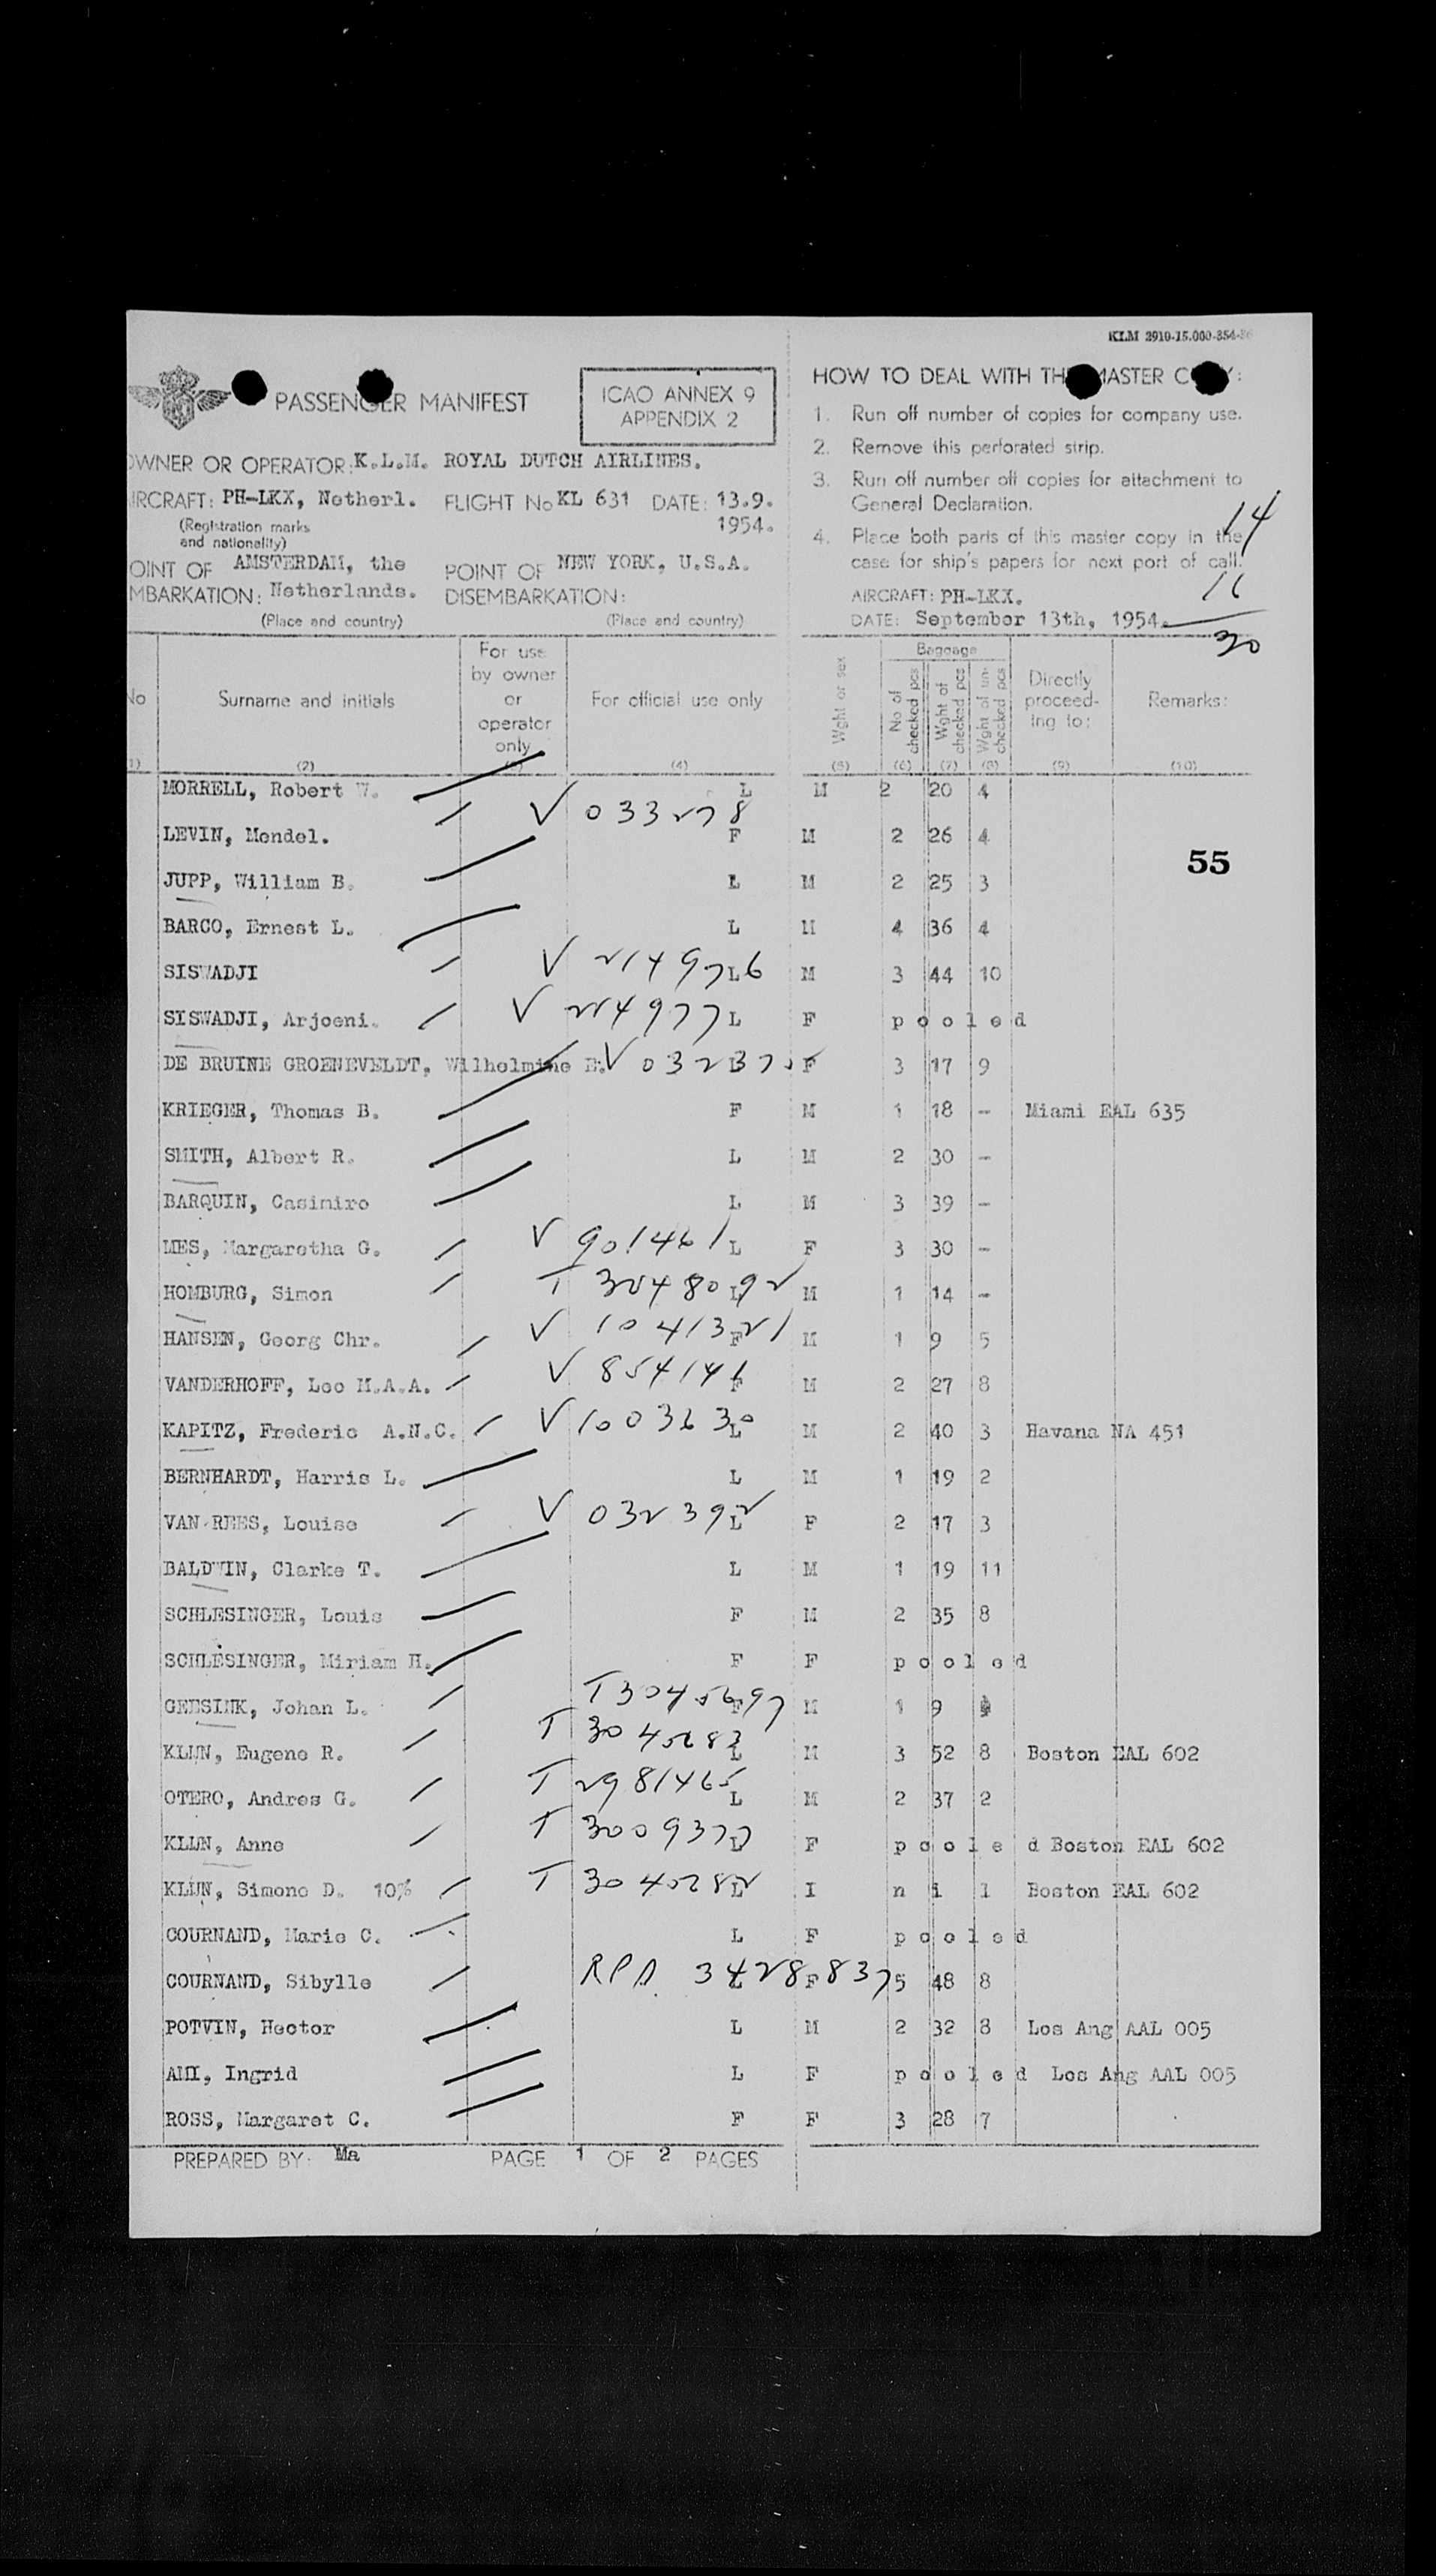 KLM 2910-15.000-354-
PASSENGER MANIFEST
ICAO ANNEX 9
APPENDIX 2
OWNER OR OPERATOR: K.L.M. ROYAL DUTCH AIRLINES.
IRCRAFT: PH-LKX, Netherl. FLIGHT No KL 631 DATE: 13.9.
1954.
(Registration marks
and nationality)
OINT OF AMSTERDAM, the POINT OF NEW YORK, U.S.A.
MBARKATION: Netherlands. DISEMBARKATION:
(Place and country) (Place and country)
HOW TO DEAL WITH THE MASTER COPY:
1. Run off number of copies for company use.
2. Remove this perforated strip.
3. Run off number off copies for attachment to
General Declaration.
4. Place both parts of this master copy in the
case for ship's papers for next port of call.
14
16
30
AIRCRAFT: PH-LKX.
DATE: September 13th, 1954.
No Surname and initials For use by owner or operator only For official use only Wght or sex Baggage No of checked pcs Wght of checked pcs Wght of un-checked pcs Directly proceed-ing to: Remarks:
(1) (2) (3) (4) (5) (6) (7) (8) (9) (10)
MORRELL, Robert W. L M 2 20 4
LEVIN, Mendel. V 033278 F M 2 26 4
55
JUPP, William B. L M 2 25 3
BARCO, Ernest L. L M 4 36 4
SISWADJI V 214976 L M 3 44 10
SISWADJI, Arjoeni. V 214977 L F pooled
DE BRUINE GROENEVELDT, Wilhelmine E. V F 3 17 9
KRIEGER, Thomas B. F M 1 18 - Miami EAL 635
SMITH, Albert R. L M 2 30 -
BARQUIN, Casimiro L M 3 39 -
MES, Margaretha G. V 901461 L F 3 30 -
HOMBURG, Simon T L M 1 14 -
HANSEN, Georg Chr. V 1041321 F M 1 9 5
VANDERHOFF, Leo M.A.A. V 854141 F M 2 27 8
KAPITZ, Frederic A.N.C. V 1003630 L M 2 40 3 Havana NA 451
BERNHARDT, Harris L. L M 1 19 2
VAN REES, Louise V 032392 L F 2 17 3
BALDWIN, Clarke T. L M 1 19 11
SCHLESINGER, Louis F M 2 35 8
SCHLESINGER, Miriam H. F F pooled
GEESINK, Johan L. T F M 1 9
KLIJN, Eugene R. T 3045283 L M 3 52 8 Boston EAL 602
OTERO, Andres G. T 2981465 L M 2 37 2
KLIJN, Anne T 3009377 L F pooled Boston EAL 602
KLIJN, Simone D. 10% T 3045282 L I nil Boston EAL 602
COURNAND, Marie C. L F pooled
COURNAND, Sibylle RPA 3428837 L F 5 48 8
POTVIN, Hector L M 2 32 8 Los Ang AAL 005
AMI, Ingrid L F pooled Los Ang AAL 005
ROSS, Margaret C. F F 3 28 7
PREPARED BY: Ma PAGE 1 OF 2 PAGES